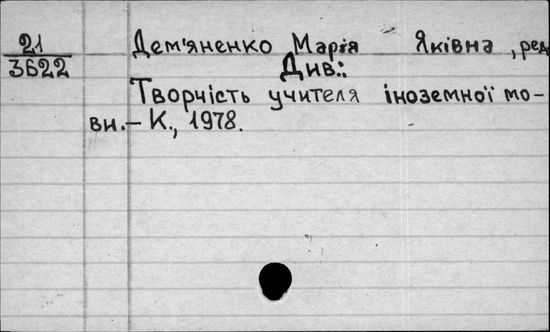 21
3622
Дем'яненко Марія Яківна, ред
Див.:
Творчість учителя іноземної мо-
ви.– К., 1978.